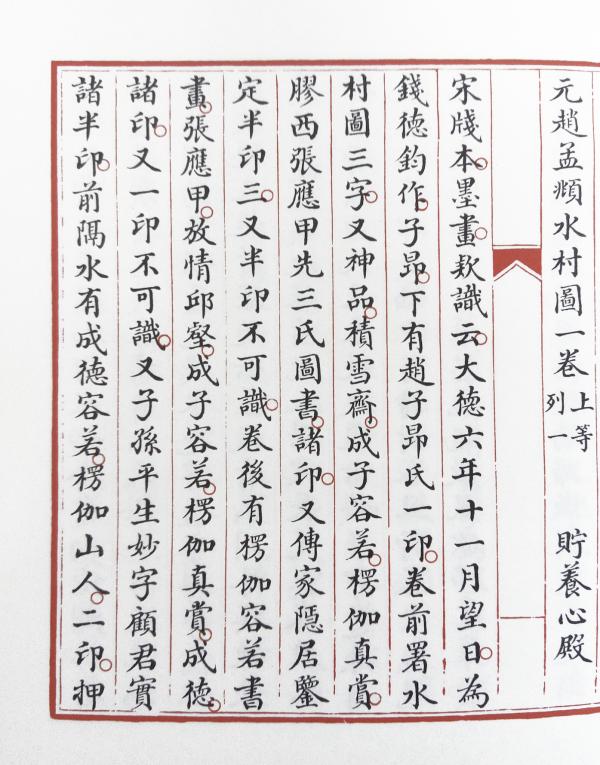 元趙孟頫水村圖一卷上等列一 貯養心殿
宋牋本墨畫欵識云大德六年十一月望日為
錢德鈞作子昂下有趙子昂氏一印卷前署水
村圖三字又神品積雪齋成子容若楞伽真賞
膠西張應甲先三氏圖書諸印又傳家隱居鑒
定半印三又半印不可識卷後有楞伽容若書
畫張應甲放情邱壑成子容若楞伽真賞成德
諸印又一印不可識又子孫平生妙字顧君實
諸半印前隅水有成德容若楞伽山人二印押